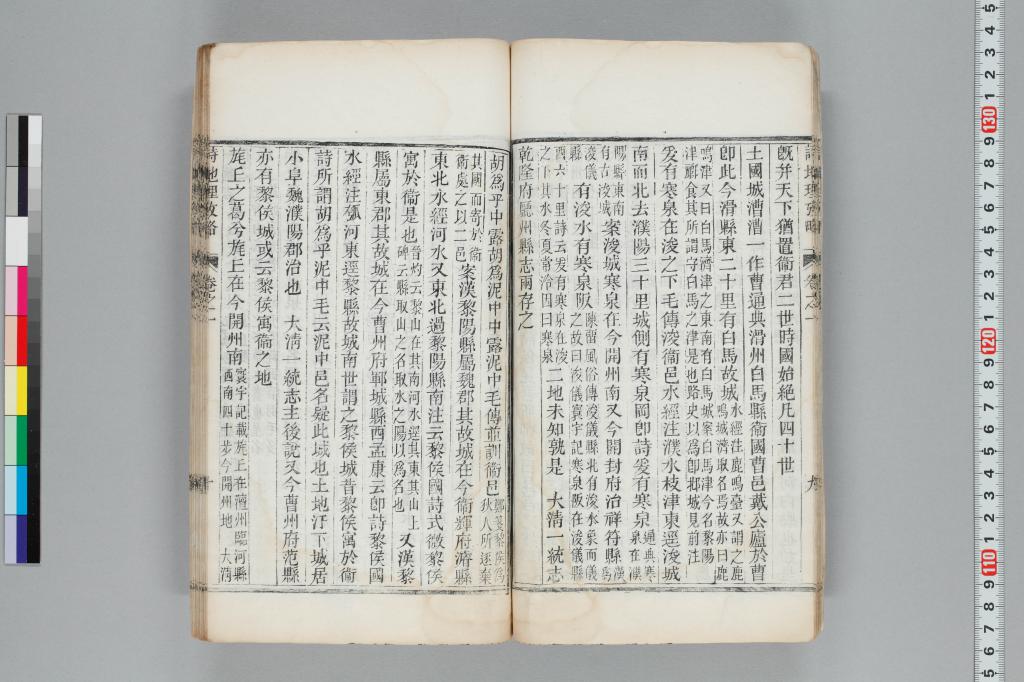 既并天下猶置衞君二世時國始絕凡四十世
土國城漕漕一作曹通典滑州白馬縣衞國曹邑戴公廬於曹
卽此今滑縣東二十里有白馬故城水經注鹿鳴臺又謂之鹿鳴城濟取名焉故亦曰鹿
鳴津又曰白馬濟津之東南有白馬城案白馬津今名黎陽
津酈食其所謂守白馬之津是也路史以爲卽邶城見前注
爰有寒泉在浚之下毛傳浚衞邑水經注濮水枝津東逕浚城
南而北去濮陽三十里城側有寒泉岡卽詩爰有寒泉通典寒泉在濮
陽縣東南有古浚城案浚城寒泉在今開州南又今開封府治祥符縣漢爲
浚儀縣有浚水有寒泉阪陳留風俗傳浚儀縣北有浚水象而儀之故曰浚儀寰宇記寒泉阪在浚儀縣
西六十里詩云爰有寒泉在浚之下其水冬夏常冷因曰寒泉二地未知孰是　大淸一統志
乾隆府廳州縣志兩存之
九
胡爲乎中露胡爲泥中中露泥中毛傳竝訓衞邑鄭箋黎侯爲狄人所逐棄
其國而寄於衞衞處之以二邑案漢黎陽縣屬魏郡其故城在今衞輝府濬縣
東北水經河水又東北過黎陽縣南注云黎侯國詩式微黎侯
寓於衞是也晉灼云黎山在其南河水逕其東其山上碑云縣取山之名取水之陽以爲名也又漢黎
縣屬東郡其故城在今曹州府鄆城縣西孟康云卽詩黎侯國
水經注瓠河東逕黎縣故城南世謂之黎侯城昔黎侯寓於衞
詩所謂胡爲乎泥中毛云泥中邑名疑此城也土地汙下城居
小阜魏濮陽郡治也　大淸一統志主後說又今曹州府范縣
亦有黎侯城或云黎侯寓衞之地
旄丘之葛兮旄丘在今開州南寰宇記載旄丘在澶州臨河縣西南四十步今開州地　大淸
詩地理攷略　卷之一